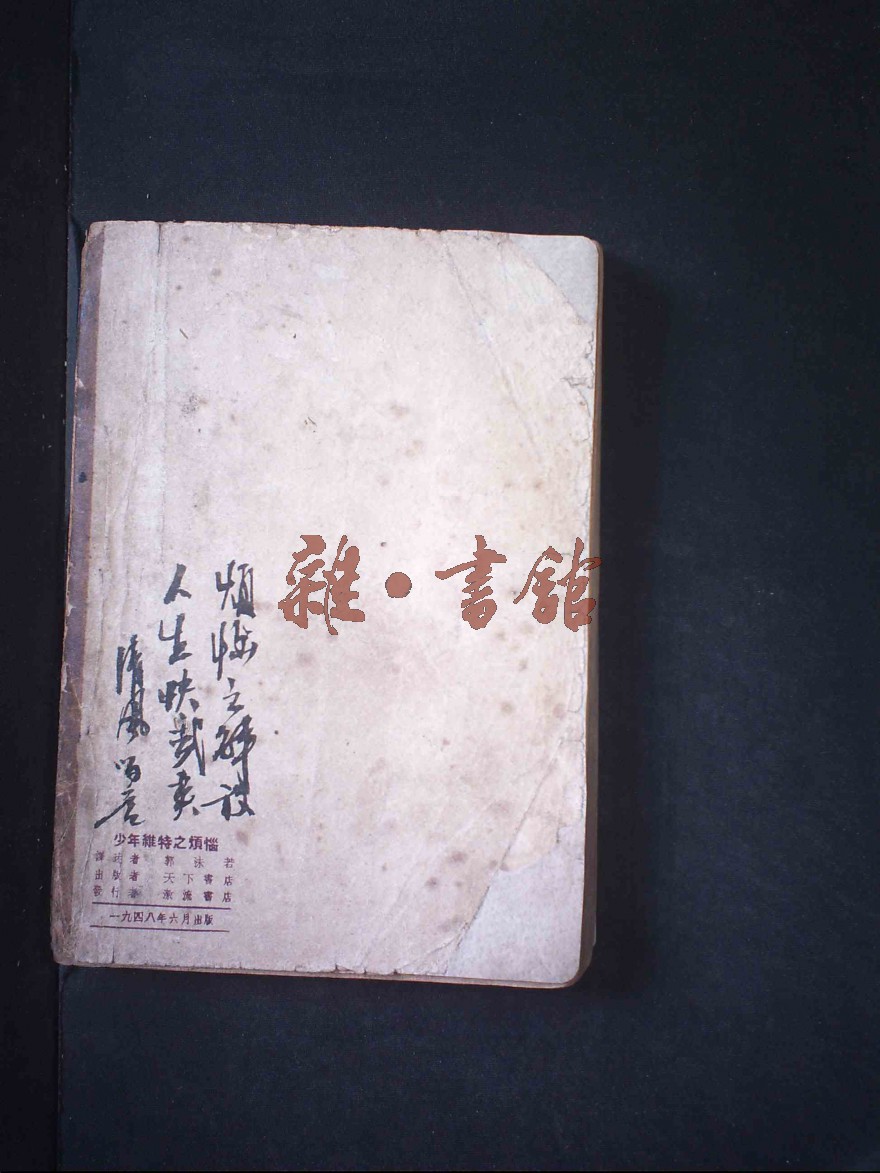 雜·書館
煩惱之解設
人生快
清風
少年維特之煩惱
譯述者 郭沫若
出版者 天下書店
發行者 永流書店
一九四八年六月出版